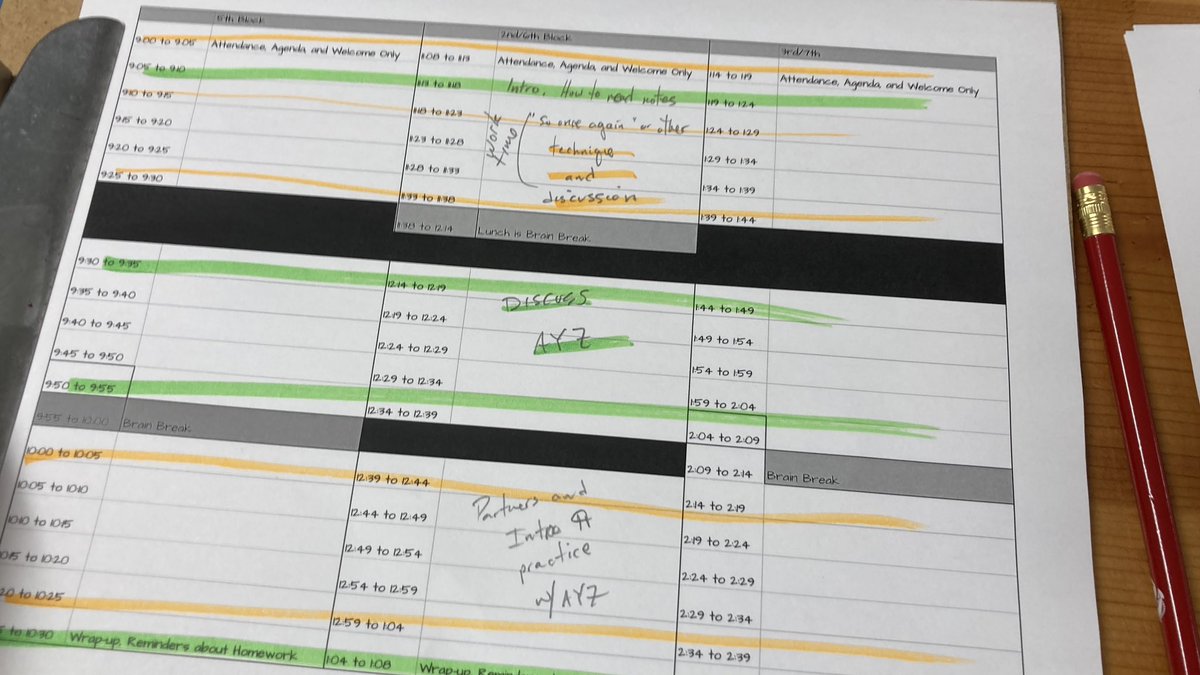 5th Block 2nd/6th Block 3rd/7th
9:00 to 9:05 Attendance, Agenda, and Welcome Only 11:08 to 11:13 Attendance, Agenda, and Welcome Only 1:14 to 1:19 Attendance, Agenda, and Welcome Only
9:05 to 9:10 11:13 to 11:18 Intro. How to read notes 1:19 to 1:24
9:10 to 9:15 11:18 to 11:23 work time "So once again" or other 1:24 to 1:29
9:15 to 9:20 11:23 to 11:28 technique 1:29 to 1:34
9:20 to 9:25 11:28 to 11:33 and 1:34 to 1:39
9:25 to 9:30 11:33 to 11:38 discussion 1:39 to 1:44
11:38 to 12:14 Lunch is Brain Break
9:30 to 9:35 12:14 to 12:19 DISCUSS 1:44 to 1:49
9:35 to 9:40 12:19 to 12:24 AYZ 1:49 to 1:54
9:40 to 9:45 12:24 to 12:29 1:54 to 1:59
9:45 to 9:50 12:29 to 12:34 1:59 to 2:04
9:50 to 9:55 12:34 to 12:39 2:04 to 2:09
9:55 to 10:00 Brain Break 2:09 to 2:14 Brain Break
10:00 to 10:05 12:39 to 12:44 Partners and 2:14 to 2:19
10:05 to 10:10 12:44 to 12:49 Intro 2:19 to 2:24
10:10 to 10:15 12:49 to 12:54 practice 2:24 to 2:29
to 10:20 12:54 to 12:59 w/AYZ 2:29 to 2:34
to 10:25 12:59 to 1:04 2:34 to 2:39
to 10:30 Wrap-up. Reminders about Homework 1:04 to 1:08 Wrap-up.